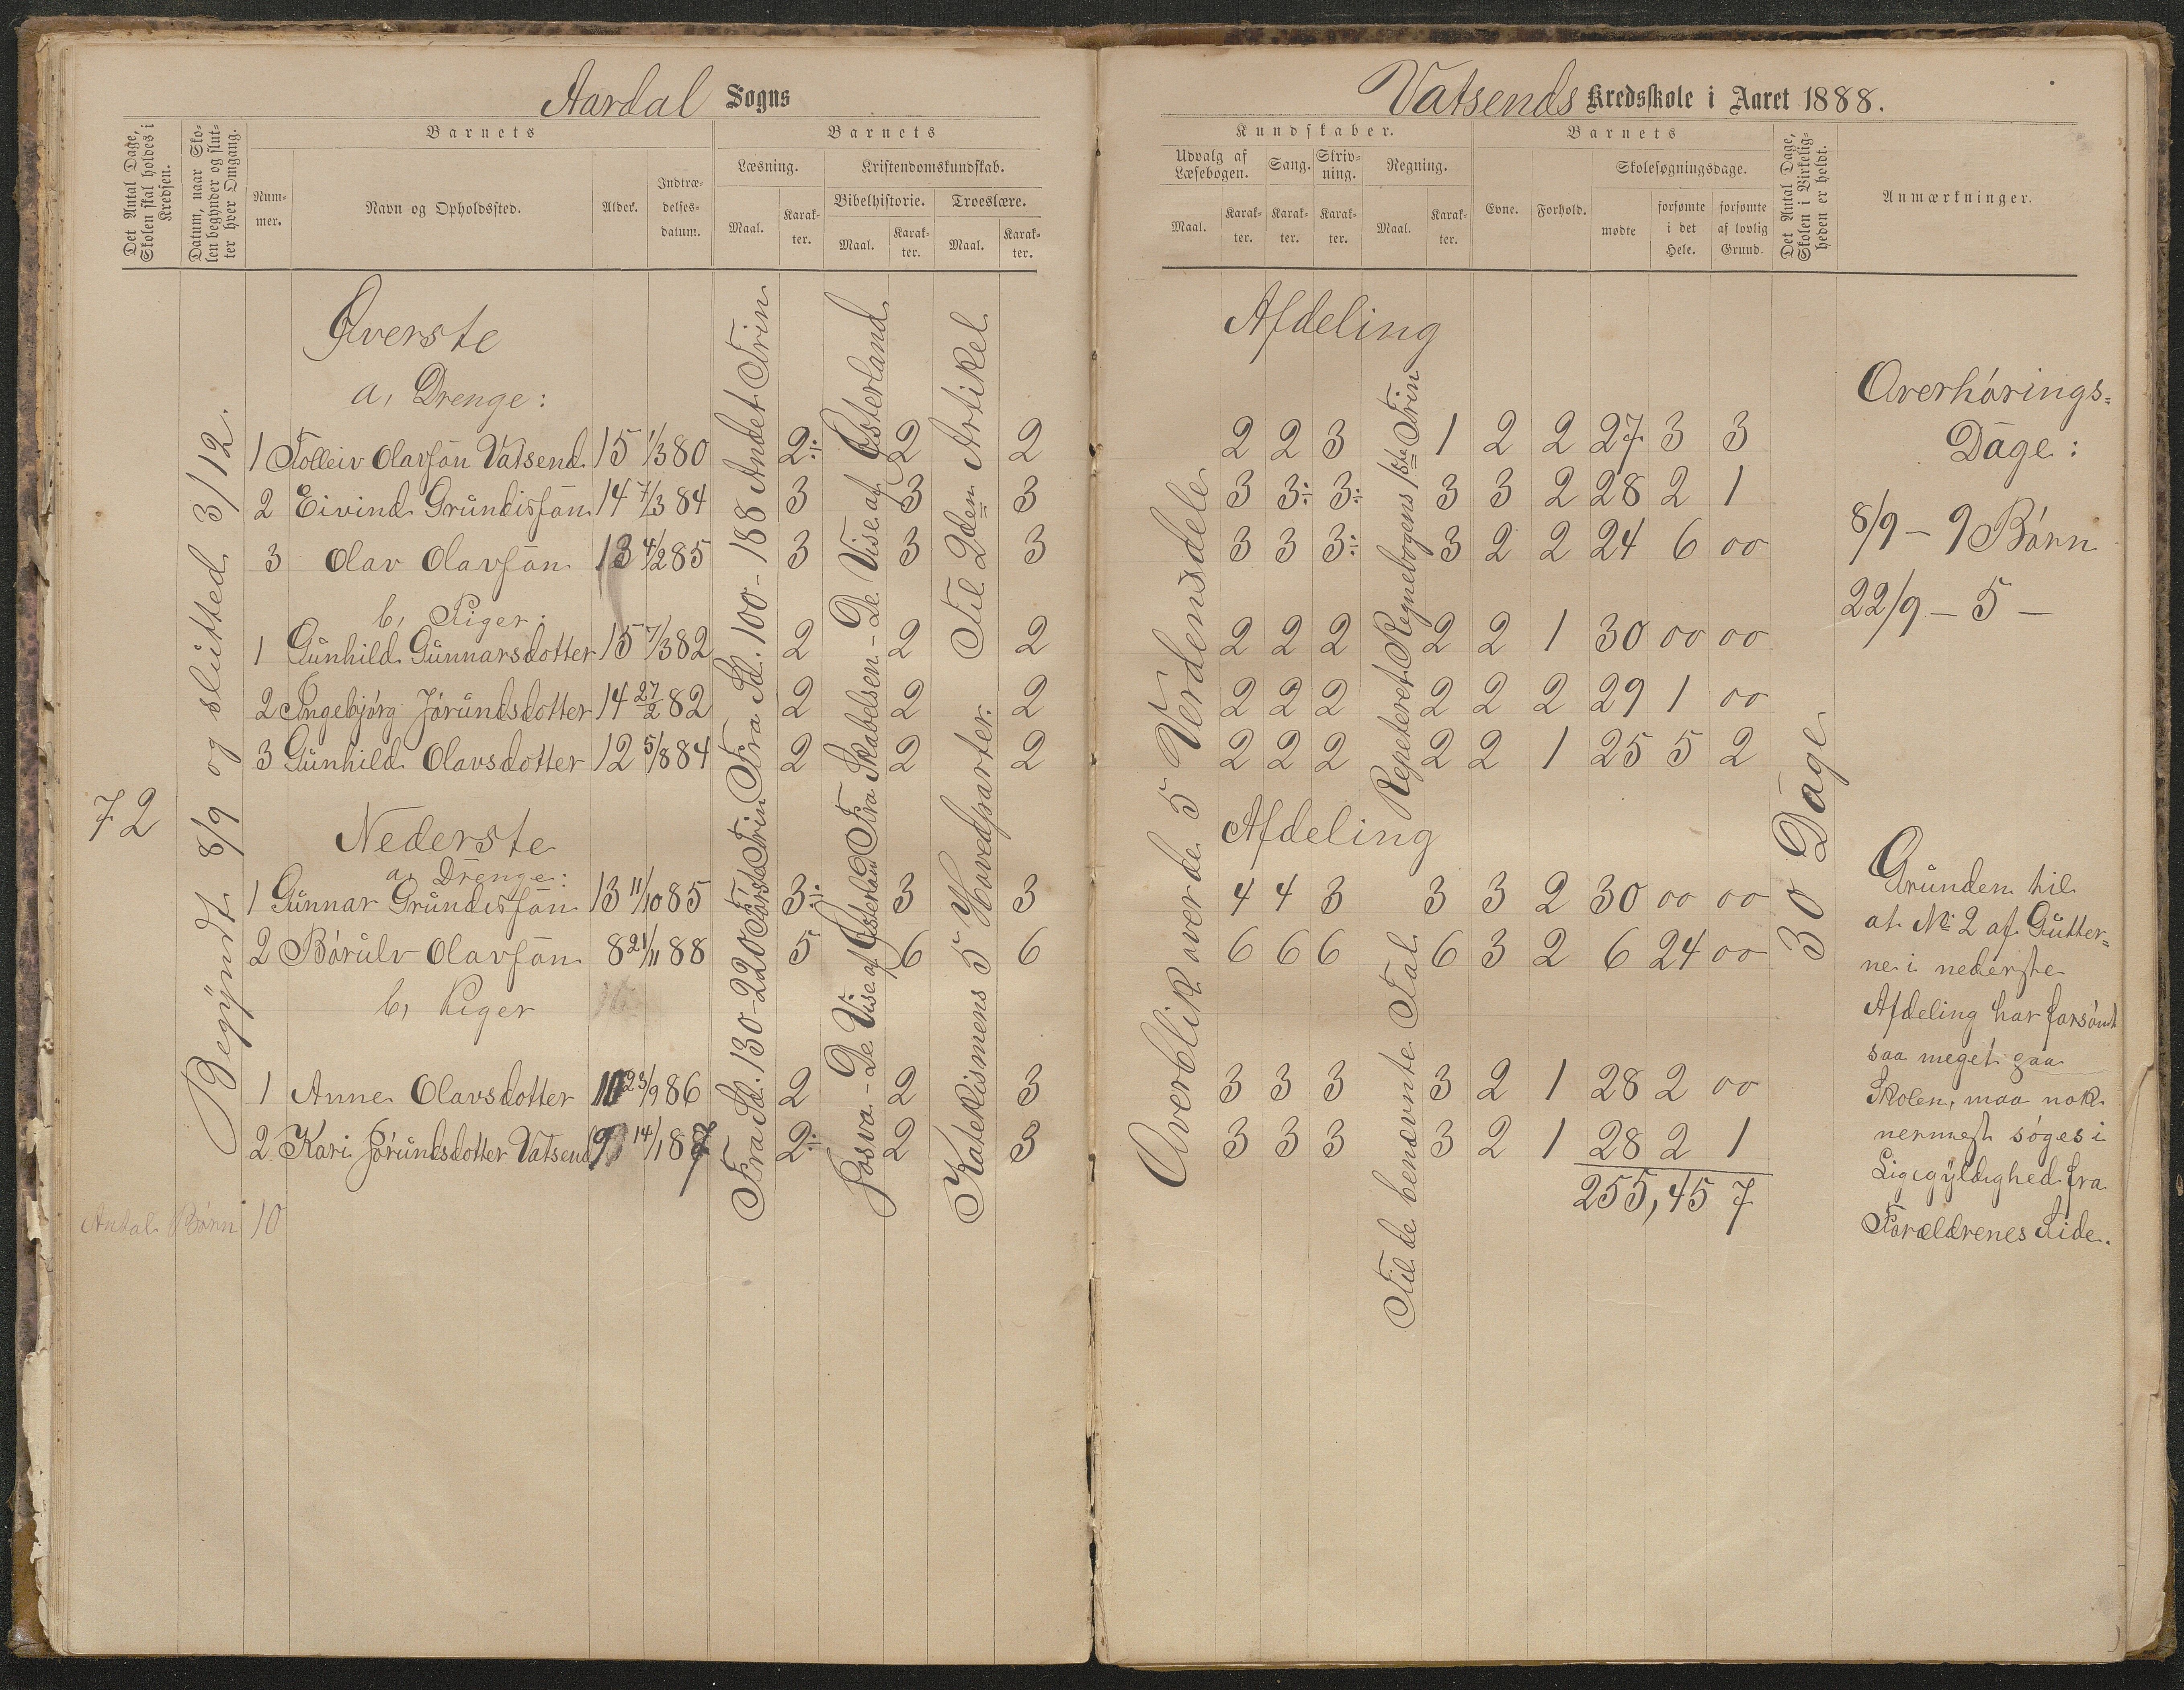 Aardal Sogns
Det Antal Dage, Skolen skal holdes i Kredsen.
Datum, naar Skolen begynder og slutter hver Omgang.
Barnets
Nummer.
Navn og Opholdssted.
Alder.
Indtrædelsesdatum.
Barnets
Læsning.
Maal.
Karakter.
Kristendomskundskab.
Bibelhistorie.
Maal.
Karakter.
Troeslære.
Maal.
Karakter.
72
Begÿndt 8/9 og slutted 3/12.
Øverste
a, Drenge:
1 Tolleiv Olavsøn Vatsend. 15 1/3 80 2÷ 2 2
2 Eivind Grundisøn 14 7/3 84 3 3 3
3 Olav Olavsøn 13 4/2 85 3 3 3
b, Piger:
1 Gunhild Gunnarsdotter 15 7/3 82 2 2 2
2 Ingebjørg Jørundsdotter 14 27/2 82 2 2 2
3 Gunhild Olavsdotter 12 5/8 84 2 2 2
Nederste
a, Drenge:
1 Gunnar Grundisøn 13 11/10 85 3÷ 3 3
2 Børulv Olavsøn 8 21/11 88 5 6 6
b, Piger
1 Anne Olavsdotter 10 23/9 86 2 2 3
2 Kari Jørundsdotter Vatsend 9 14/1 87 2÷ 2 3
Antal Børn 10
Fra Sd. 100-188 Andet Trin
Fra Sd. 130-220 Første Trin
Fra Skabelsen - De Vise af Østerland
Josva - De Vise af Østerland
Til 2den Artikel
Katekismens 5 Hovedparter.
Vatsends Kredsskole i Aaret 1888.
Kundskaber.
Udvalg af Læsebogen.
Maal.
Karakter.
Sang.
Karakter.
Skrivning.
Karakter.
Regning.
Maal.
Karakter.
Barnets
Evne.
Forhold.
Skolesøgningsdage.
mødte
forsømte i det Hele.
forsømte af lovlig Grund.
Det Antal Dage, Skolen i Virkeligheden er holdt.
Anmærkninger.
Afdeling
2 2 3 1 2 2 27 3 3
3 3÷ 3÷ 3 3 2 28 2 1
3 3 3÷ 3 2 2 24 6 00
2 2 2 2 2 1 30 00 00
2 2 2 2 2 2 29 1 00
2 2 2 2 2 1 25 5 2
Afdeling
4 4 3 3 3 2 30 00 00
6 6 6 6 3 2 6 24 00
3 3 3 3 2 1 28 2 00
3 3 3 3 2 1 28 2 1
255, 45 7
Overblik over de 5 Verdensdele
Repeteret Regnebogens 1ste Trin
Til de benævnte Tal.
30 Dage
Overhørings-
Dage:
8/9 - 9 Børn
22/9 - 5 -
Grunden til
at No 2 af Gutter-
ne i nederste
Afdeling har forsømt
saa meget paa
Skolen, maa nok
nermest søges i
Ligegÿldighed fra
Forældrenes Side.